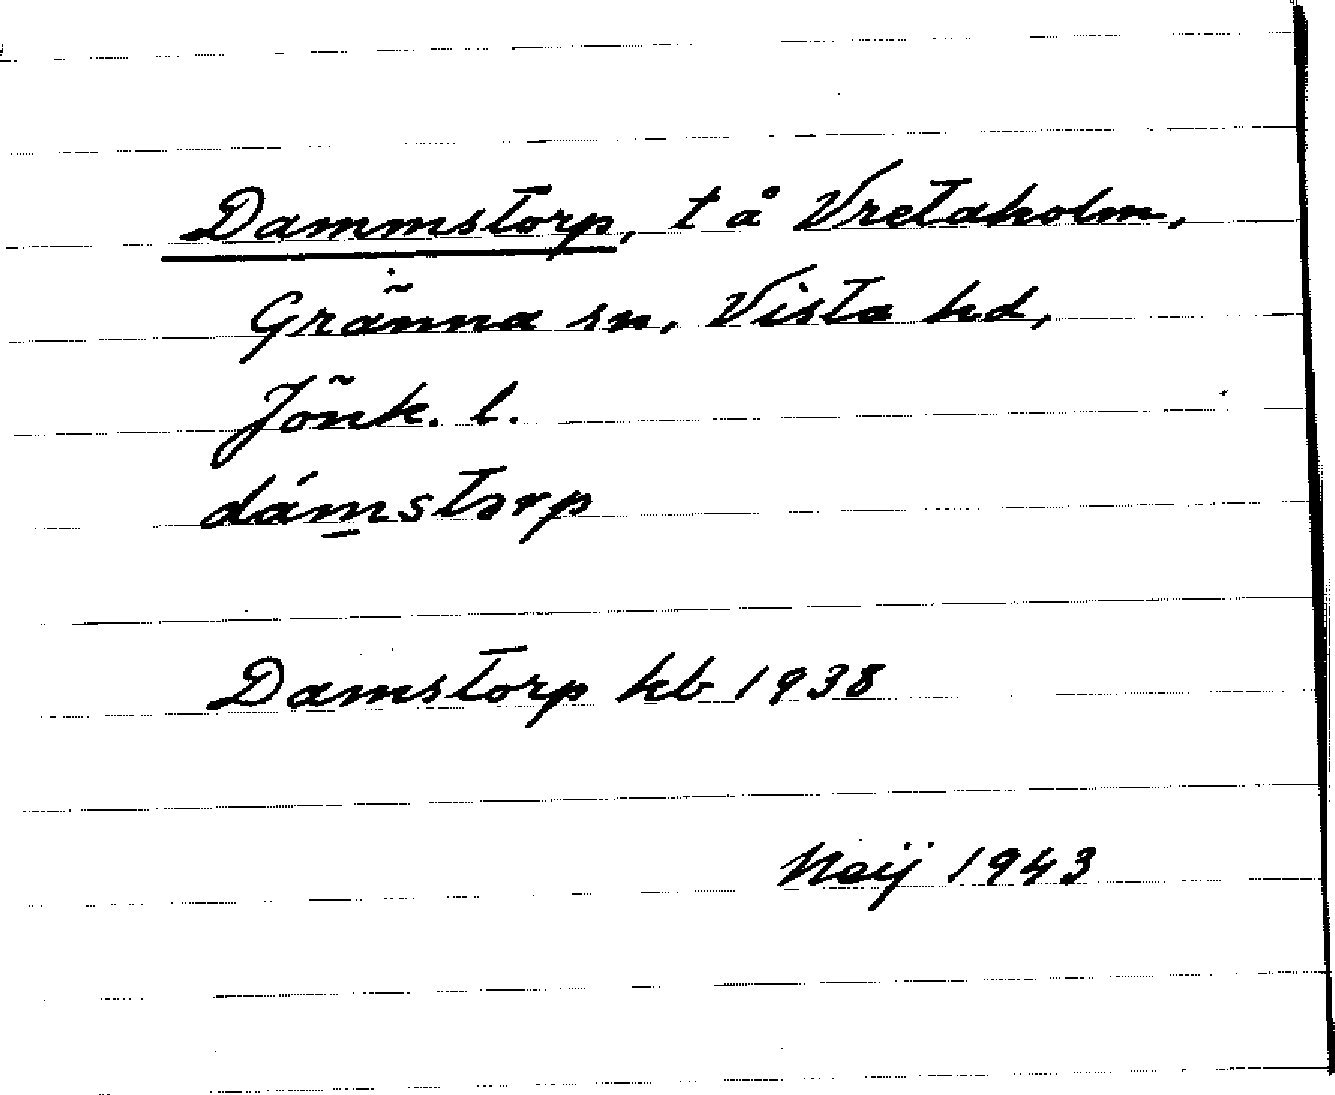 Dammstorp, t å Vretaholm,
Gränna sn, Vista hd,
Jönk. l.
dámstorp
Damstorp kb 1938
Neij 1943